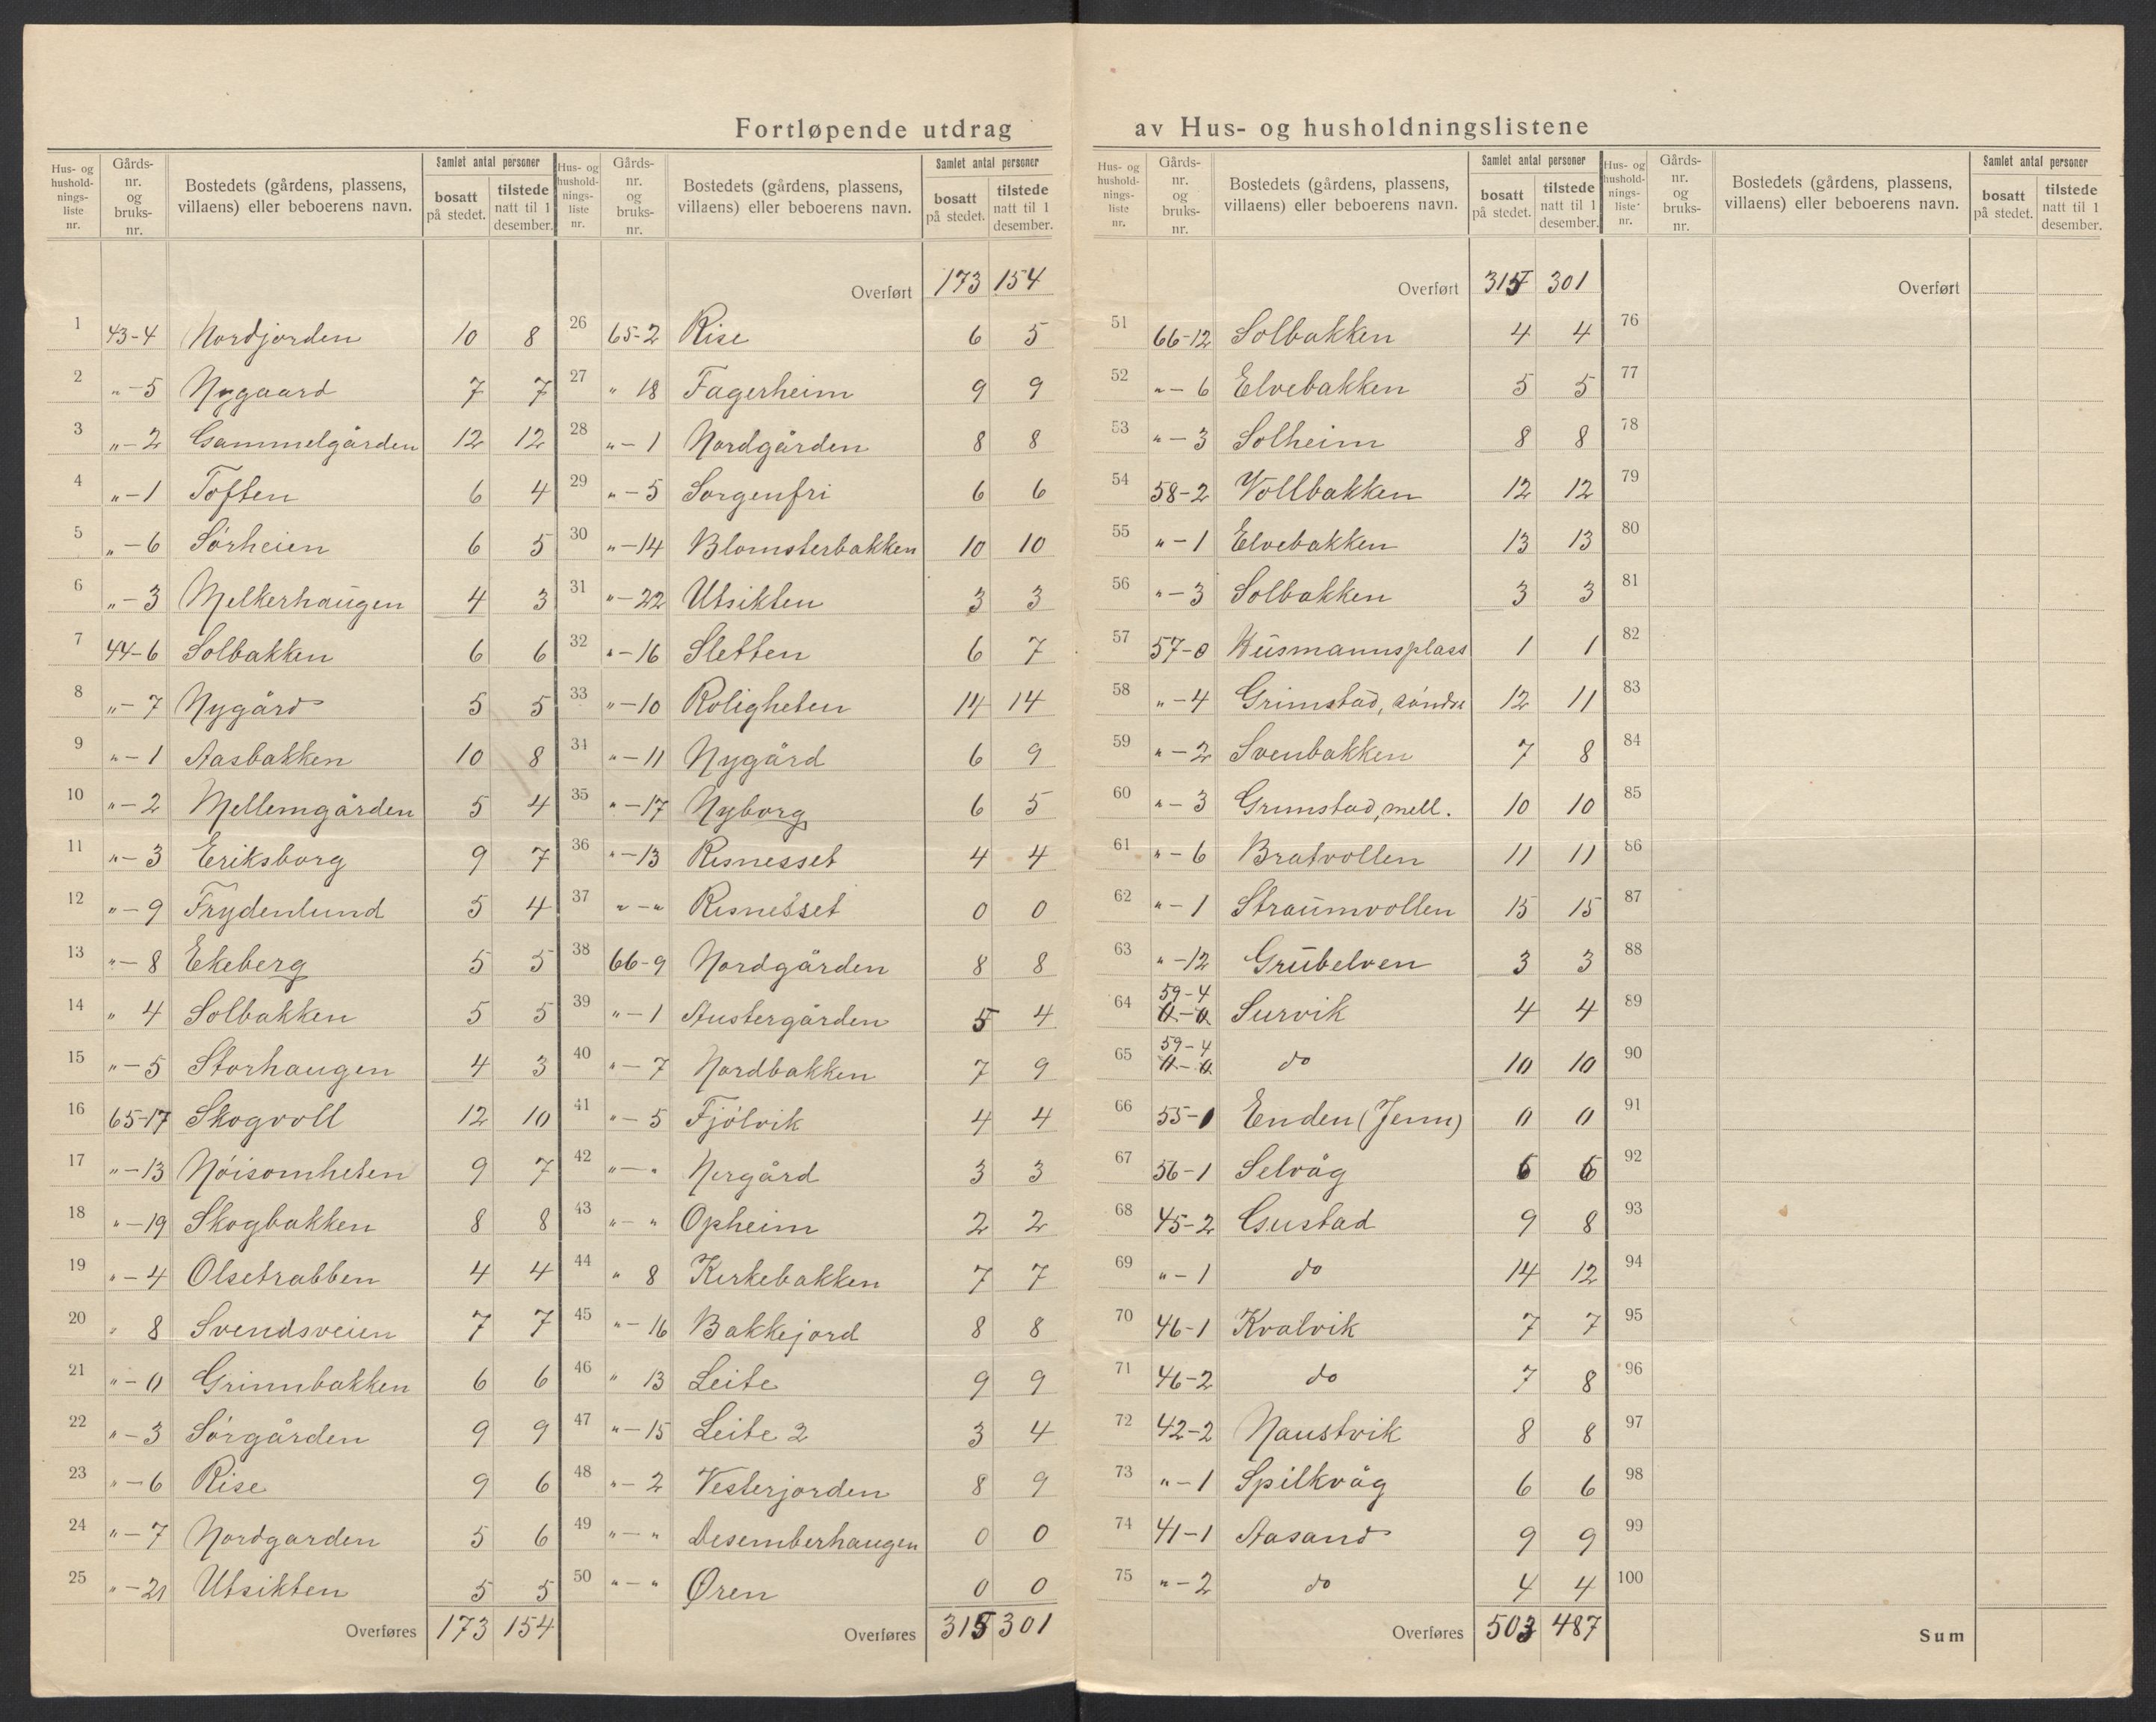 Fortløpende utdrag av Hus- og husholdningslistene
Hus- og husholdningsliste nr. | Gårds-nr. og bruks-nr. | Bostedets (gårdens, plassens, villaens) eller beboerens navn. | Samlet antal personer | bosatt på stedet. | tilstede natt til 1 desember.
1 43-4 Nordjorden 10 8
2 "-5 Nygaard 7 7
3 "-2 Gammelgården 12 12
4 "-1 Toften 6 4
5 "-6 Sørheien 6 5
6 "-3 Melkerhaugen 4 3
7 44-6 Solbakken 6 6
8 "-7 Nygård 5 5
9 "-1 Aasbakken 10 8
10 "-2 Mellemgården 5 4
11 "-3 Eriksborg 9 7
12 "-9 Frydenlund 5 4
13 "-8 Ekeberg 5 5
14 " 4 Solbakken 5 5
15 "-5 Storhaugen 4 3
16 65-17 Skogvoll 12 10
17 "-13 Nöisomheten 9 7
18 "-19 Skogbakken 8 8
19 "-4 Olsetrabben 4 4
20 " 8 Svendsveien 7 7
21 "-0 Grinnbakken 6 6
22 "-3 Sörgården 9 9
23 "-6 Rise 9 6
24 "-7 Nordgarden 5 6
25 "-21 Utsikten 5 5
Overføres 173 154
Hus- og husholdningsliste nr. | Gårds-nr. og bruks-nr. | Bostedets (gårdens, plassens, villaens) eller beboerens navn. | Samlet antal personer | bosatt på stedet. | tilstede natt til 1 desember.
Overført 173 154
26 65-2 Rise 6 5
27 " 18 Fagerheim 9 9
28 "-1 Nordgården 8 8
29 "-5 Sorgenfri 6 6
30 "-14 Blomsterbakken 10 10
31 "-22 Utsikten 3 3
32 "-16 Sletten 6 7
33 "-10 Roligheten 14 14
34 "-11 Nygård 6 9
35 "-17 Nyborg 6 5
36 "-13 Risnesset 4 4
37 "-" Risnesset 0 0
38 66-9 Nordgården 8 8
39 "-1 Austergården 5 4
40 "-7 Nordbakken 7 9
41 "-5 Fjölvik 4 4
42 "-" Nergård 3 3
43 "-" Opheim 2 2
44 " 8 Kirkebakken 7 7
45 "-16 Bakkejord 8 8
46 " 13 Leite 9 9
47 "-15 Leite 2 3 4
48 "-2 Vesterjorden 8 9
49 "-" Desemberhaugen 0 0
50 "-" Øren 0 0
Overføres 315 301
Hus- og husholdningsliste nr. | Gårds-nr. og bruks-nr. | Bostedets (gårdens, plassens, villaens) eller beboerens navn. | Samlet antal personer | bosatt på stedet. | tilstede natt til 1 desember.
Overført 315 301
51 66-12 Solbakken 4 4
52 "-6 Elvebakken 5 5
53 "-3 Solheim 8 8
54 58-2 Vollbakken 12 12
55 "-1 Elvebakken 13 13
56 "-3 Solbakken 3 3
57 57-0 Husmannsplass 1 1
58 "-4 Grimstad, söndre 12 11
59 "-2 Svenbakken 7 8
60 "-3 Grimstad, mell. 10 10
61 "-6 Bratvollen 11 11
62 "-1 Straumvollen 15 15
63 "-12 Grubelven 3 3
64 59-4 0-0 Survik 4 4
65 59-4 0-0 do 10 10
66 55-1 Enden (Jenn) 0 0
67 56-1 Selvåg 6 6
68 45-2 Gustad 9 8
69 "-1 do 14 12
70 46-1 Kvalvik 7 7
71 46-2 do 7 8
72 42-2 Naustvik 8 8
73 "-1 Spilkvåg 6 6
74 41-1 Aasand 9 9
75 "-2 do 4 4
Overføres 503 487
Hus- og husholdningsliste nr. | Gårds-nr. og bruks-nr. | Bostedets (gårdens, plassens, villaens) eller beboerens navn. | Samlet antal personer | bosatt på stedet. | tilstede natt til 1 desember.
Overført
76
77
78
79
80
81
82
83
84
85
86
87
88
89
90
91
92
93
94
95
96
97
98
99
100
Sum